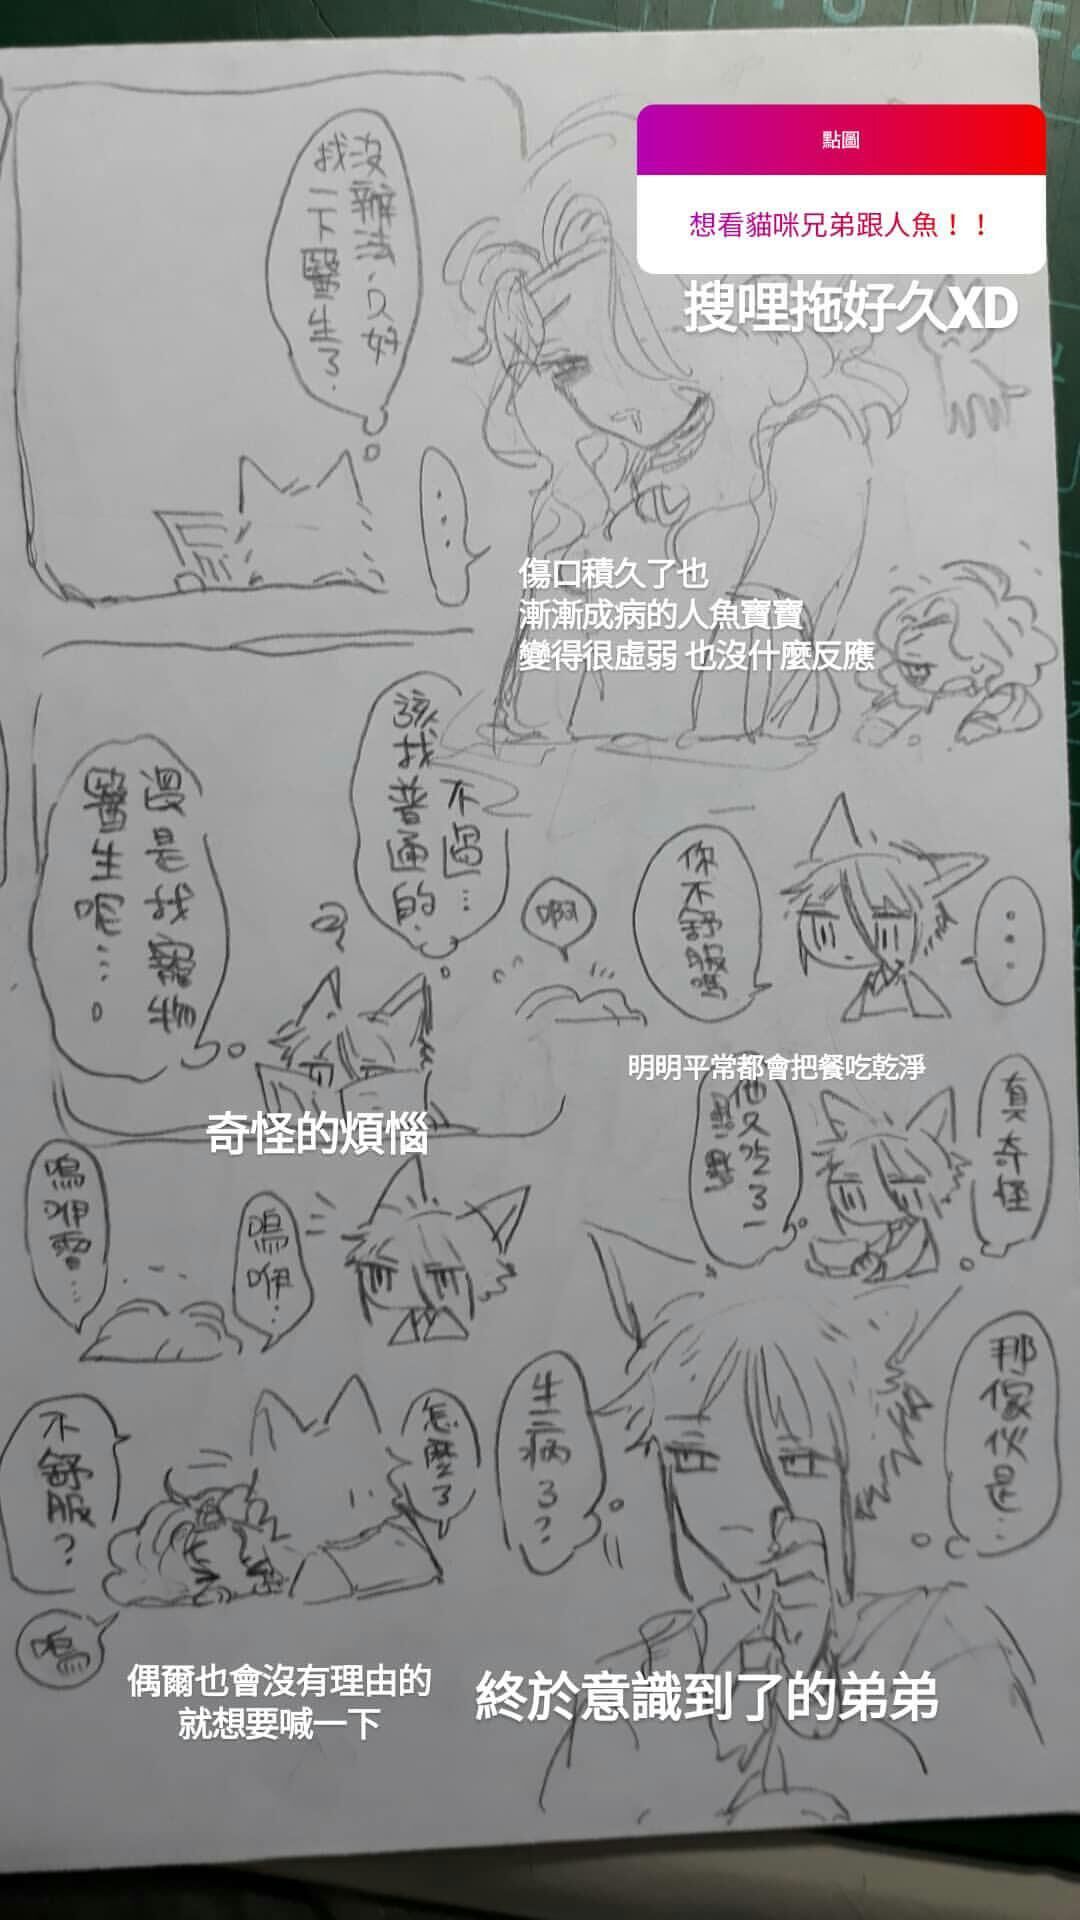 點圖
想看貓咪兄弟跟人魚！！
搜哩拖好久XD
傷口積久了也
漸漸成病的人魚寶寶
變得很虛弱 也沒什麼反應
...
你不舒服嗎
明明平常都會把餐吃乾淨
真奇怪
他只吃了一點點
那傢伙是...
生病了?
終於意識到了的弟弟
沒辦法,只好
找一下醫生了.
...
不過...
該找普通的.
還是找寵物
醫生呢....。
奇怪的煩惱
啊
嗚咿...
嗚咿雷...
怎麼了
不舒服?
嗚
偶爾也會沒有理由的
就想要喊一下